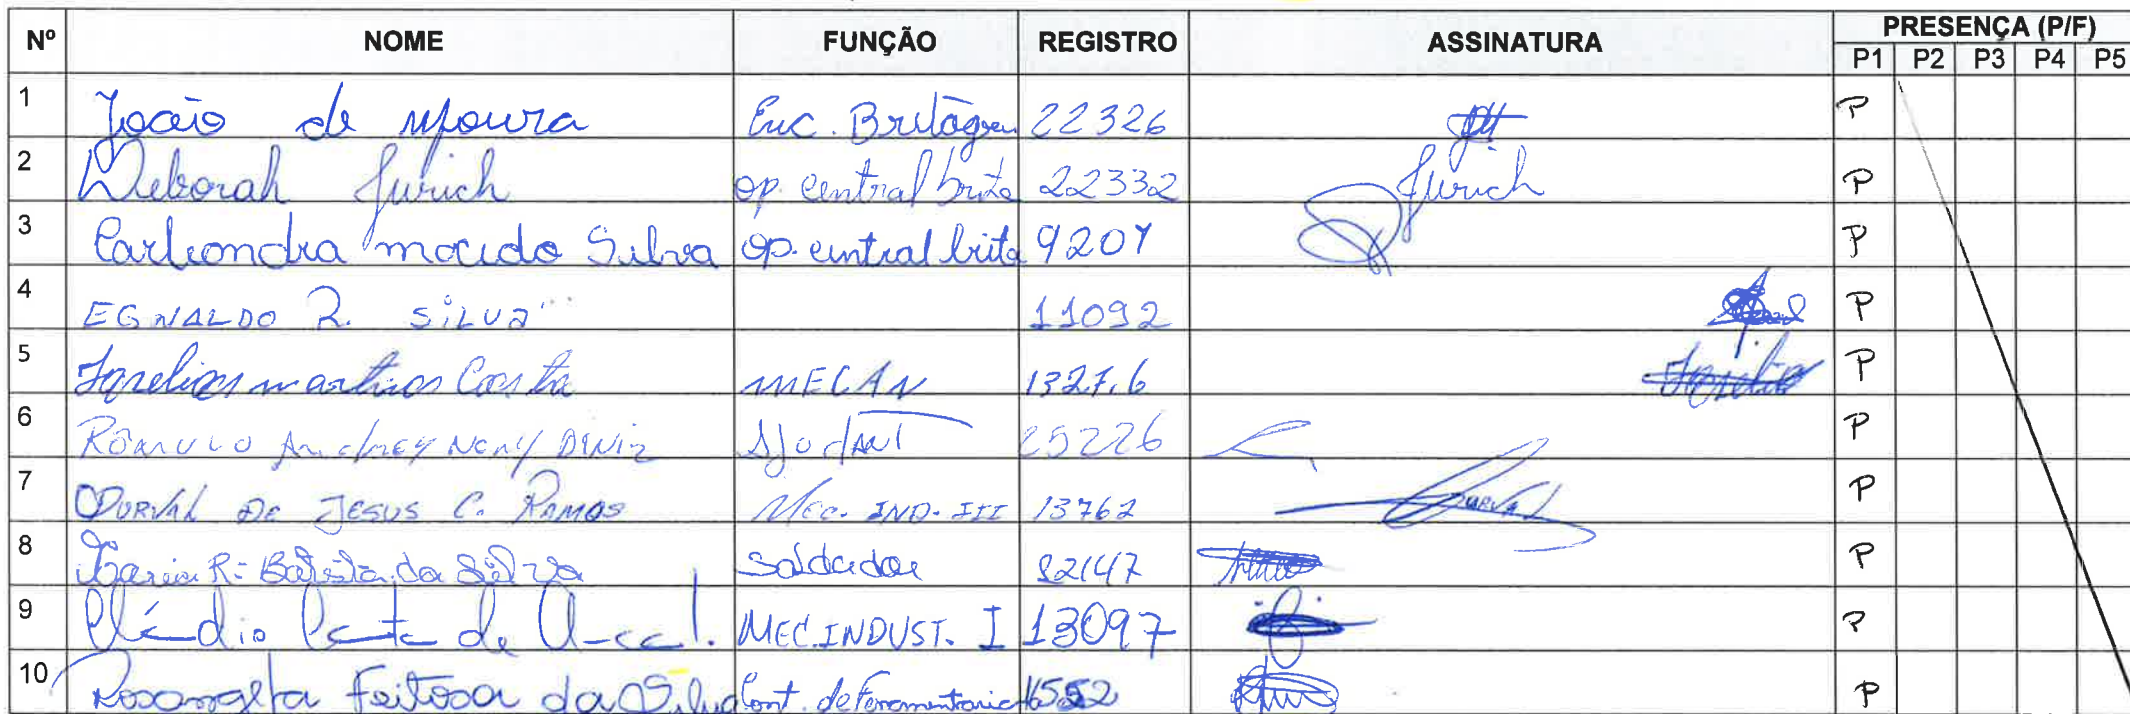 Nº NOME FUNÇÃO REGISTRO ASSINATURA PRESENÇA (P/F)
P1 P2 P3 P4 P5
1 João de Moura Enc. Britagem 22326 P
2 Deborah Jurich op. central brita 22332 Jurich P
3 Carliondra macedo Silva op. central brita 9207 P
4 EGNALDO R. SILVA 11092 P
5 martins Costa MECAN 1327.6 P
6 RÔMULO Andrey Nery DINIZ AJUDANT 25226 P
7 DURVAL DE JESUS C. RAMOS Mec. IND. III 13762 DURVAL P
8 Maria R. Batista da Silva Soldador 22147 P
9 Cláudio Costa de MEC.INDUST. I 13097 P
10 Rosangela Feitosa da Silva Cont. de Feramentaria P